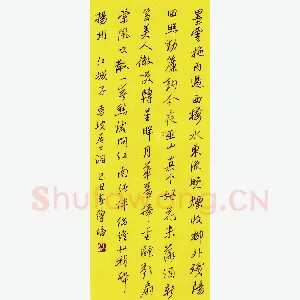 墨雲拖雨過西樓水東流晚煙收柳外殘陽
回照動簾鉤今夜巫山真个好花未落酒新
篘美人微笑轉星眸月華羞捧金甌歌扇
縈風吹散一春愁試問江南諸伴侶誰似我醉
揚州 江城子 東坡居士詞 己丑
Shufawang.CN